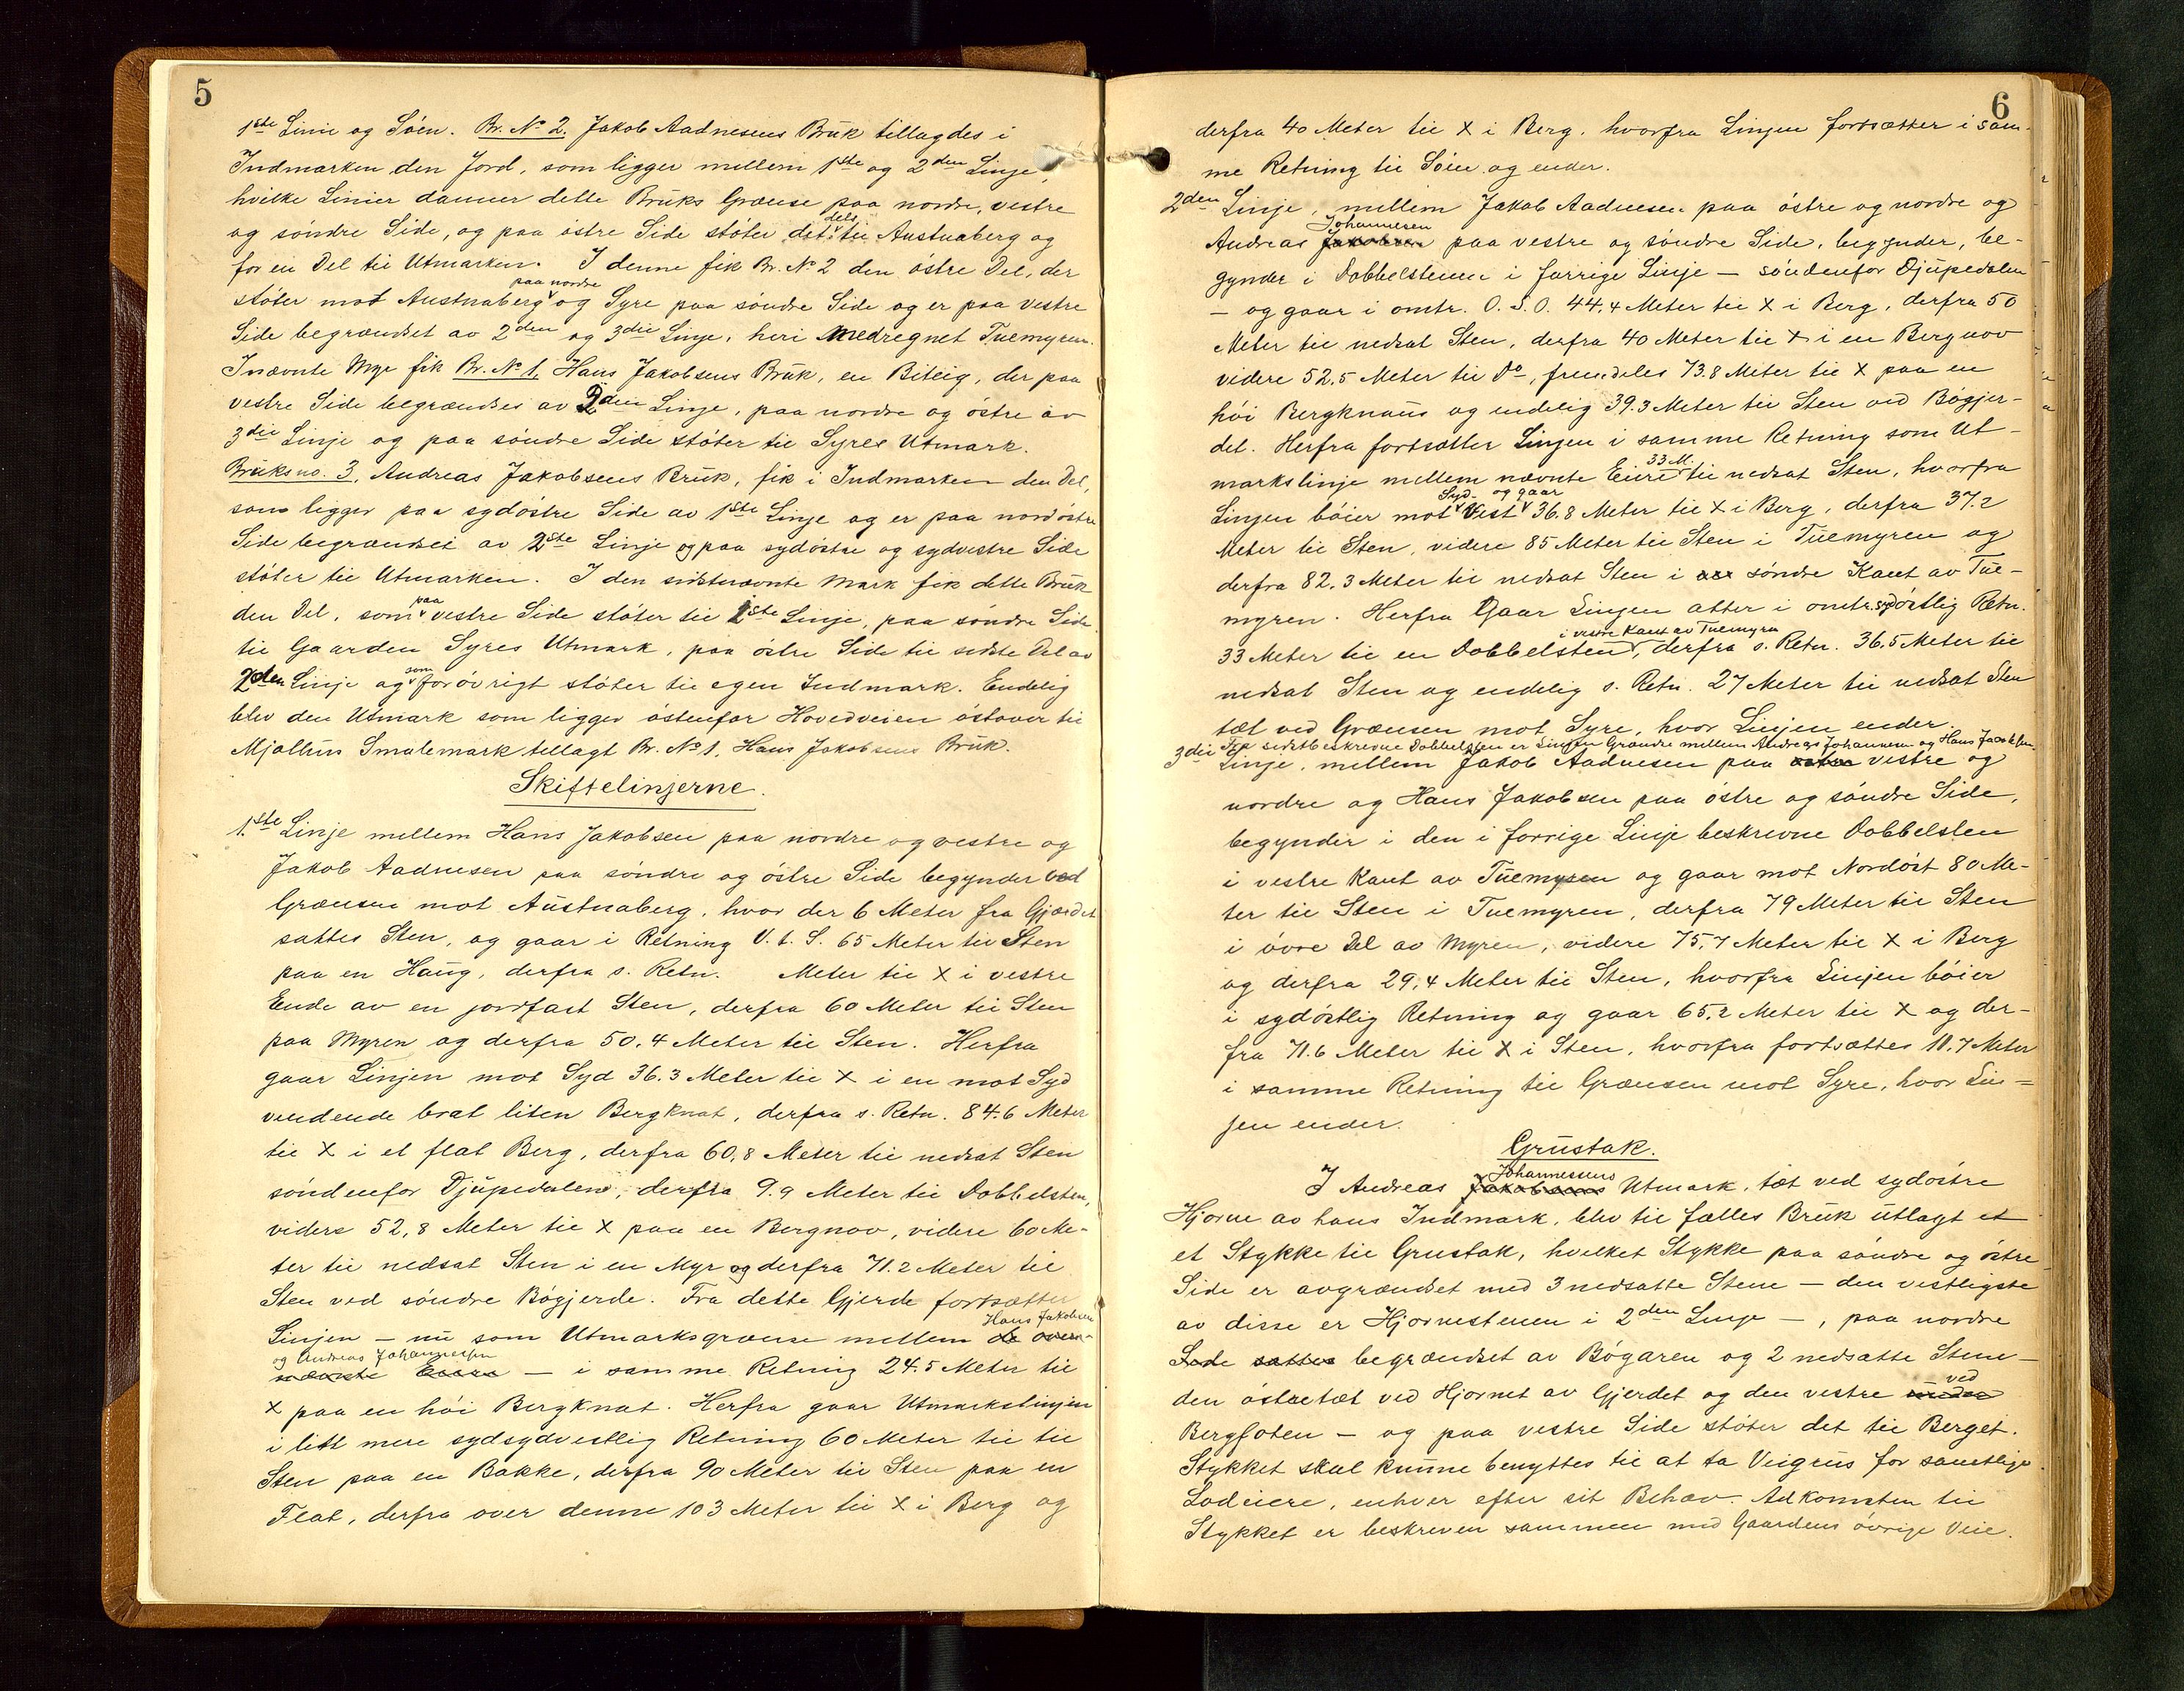 5
1ste Linie og Sóen. Br. No 2. Jakob Aadnesens Brŭk tillagdes i
Indmarken den Jord, som ligger mellem 1ste og 2den Linje,
hvilke Linier danner dette Brŭks Grænse paa nordre, vestre
og søndre Side, og paa østre Side støter det dels til Austnaberg og
for en Del til Utmarken. I denne fik Br. No 2 den østre Del, der
støter mot Austnaberg paa nordre og Syre paa søndre Side og er paa vestre
Side begrændset av 2den og 3die Linje, heri medregnet Tuemyren.
Inævnte Myr fik Br. No 1, Hans Jakobsens Brŭk, en Biteig, der paa
vestre Side begrændses av 2den Linje, paa nordre og østre av
3die Linje og paa søndre Side støter til Syres Utmark.
Brŭksno. 3, Andreas Jakobsens Brŭk, fik i Indmarken den Del,
som ligger paa sydøstre Side av 1ste Linje og er paa nordøstre
Side begrændset av 2den Linje og paa sydøstre og sydvestre Side
støter til Utmarken. I den sidstnævnte Mark fik dette Brŭk
den Del, som paa vestre Side støter til 1ste Linje, paa søndre Side
til Gaarden Syres Utmark, paa østre Side til sidste Del av
2den Linje og som forøvrigt støter til egen Indmark. Endelig
blev den Utmark som ligger østenfor Hovedveien østover til
Mjølhŭs Smalemark tillagt Br. No 1, Hans Jakobsens Brŭk.
Skiftelinjerne.
1.ste Linje mellem Hans Jakobsen paa nordre og vestre og
Jakob Aadnesen paa søndre og østre Side begynder ved
Grænsen mot Aŭstnaberg, hvor der 6 Meter fra Gjærdet
sattes Sten, og gaar i Retning V. t. S. 65 Meter til Sten
paa en Haŭg, derfra s. Retn. Meter til X i vestre
Ende av en jordfast Sten, derfra 60 Meter til Sten
paa Myren og derfra 50,4 Meter til Sten. Herfra
gaar Linjen mot Syd 36.3 Meter til X i en mot Syd
vendende brat liten Bergknat, derfra s. Retn. 84.6 Meter
til X i et flat Berg, derfra 60,8 Meter til nedsat Sten
søndenfor Djŭpedalen, derfra 9.9 Meter til Dobbelsten,
videre 52,8 Meter til X paa en Bergnov, videre 60 Me-
ter til nedsat Sten i en Myr og derfra 71.2 Meter til
Sten ved søndre Bøgjerde. Fra dette Gjerde fortsætter
Linjen – nŭ som Utmarksgrænse mellem de oven- Hans Jakobsen
nævnte Eiere og Andreas Johannessen – i samme Retning 24.5 Meter til
X paa en høi Bergknat. Herfra gaar Utmarkslinjen
i litt mere sydsydvestlig Retning 60 Meter til til
Sten paa en Bakke, derfra 90 Meter til Sten paa en
Flat, derfra over denne 103 Meter til X i Berg og
6
derfra 40 Meter til X i Berg, hvorfra Linjen fortsætter i sam-
me Retning til Søen og ender.
2den Linje, mellem Jakob Aadnesen paa østre og nordre og
Andreas Jakobsen Johannesen paa vestre og søndre Side, begynder, be-
gynder i Dobbelstenen i forrige Linje – søndenfor Djŭpedalen
– og gaar i omtr. O.S.O. 44,4 Meter til X i Berg, derfra 50
Meter til nedsat Sten, derfra 40 Meter til X i en Bergnov
videre 52,5 Meter til Do, fremdeles 73.8 Meter til X paa en
høi Bergknaŭs og endelig 39.3 Meter til Sten ved Bøgjer-
det. Herfra fortsætter Linjen i samme Retning som Ut-
markslinje mellem nævnte Eiere 33 M. til nedsat Sten, hvorfra
Linjen bøier mot Syd- Vest og gaar 36.8 Meter til X i Berg, derfra 37.2
Meter til Sten, videre 85 Meter til Sten i Tŭemyren og
derfra 82,3 Meter til nedsat Sten i søndre Kant av Tŭe-
myren. Herfra gaar Linjen atter i omtr. sydøstlig Retn.
33 Meter til en Dobbelsten i vestre Kant av Tuemyra, derfra s. Retn. 36,5 Meter til
nedsat Sten og endelig s. Retn. 27 Meter til nedsat Sten
tæt ved Grænsen mot Syre, hvor Linjen ender.
Fra sidstbeskrevne Dobbelsten er Linjen Grændse mellem Andreas Johannesen og Hans Jacobsen.
3die Linje, mellem Jakob Aadnesen paa østre vestre og
nordre og Hans Jakobsen paa østre og søndre Side,
begynder i den i forrige Linje beskrevne Dobbelsten
i vestre Kant av Tŭemyren og gaar mot Nordøst 80 Me-
ter til Sten i Tuemyren, derfra 79 Meter til Sten
i øvre Del av Myren, videre 75,7 Meter til X i Berg
og derfra 29,4 Meter til Sten, hvorfra Linjen bøier
i sydøstlig Retning og gaar 65,2 Meter til X og der-
fra 71.6 Meter til X i Sten, hvorfra fortsættes 11.7 Meter
i samme Retning til Grænsen mot Syre, hvor Lin-
jen ender.
Grŭstak.
I Andreas Jakobsens Johannessens Utmark, tæt ved sydøstre
Hjørne av hans Indmark, blev til fælles Brŭk ŭtlagt et
et Stykke til Grustak, hvilket Stykke paa søndre og østre
Side er avgrændset med 3 nedsatte Stene – den vestligste
av disse er Hjørnestenen i 2den Linje –, paa nordre
Side sattes begrændset av Bøgaren og 2 nedsatte Stene –
den østre tæt ved Hjørnet av Gjerdet og den vestre ŭnder ved
Bergfoten – og paa vestre Side støter det til Berget.
Stykket skal kŭnne benyttes til at ta Veigrŭs for samtlige
Lodeiere, enhver efter sit Behov. Adkomsten til
Stykket er beskreven sammen med Gaardens øvrige Veie.